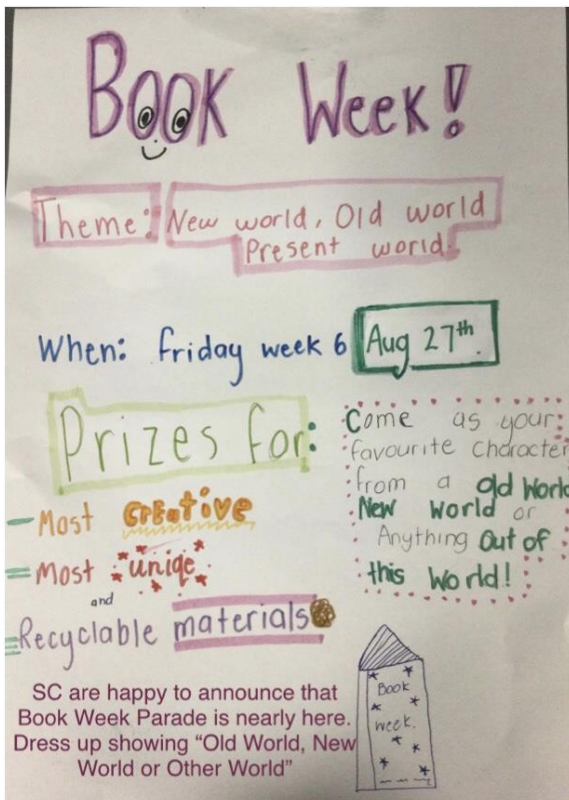 Book Week!
Theme: New world, Old world
Present world.
When: friday week 6 Aug 27th.
Prizes for:
- Most CREative
= Most uniqe
and
= Recyclable materials
Come as your
favourite Character
from a old World
New World or
Anything Out of
this World!
Book
week.
SC are happy to announce that
Book Week Parade is nearly here.
Dress up showing “Old World, New
World or Other World”